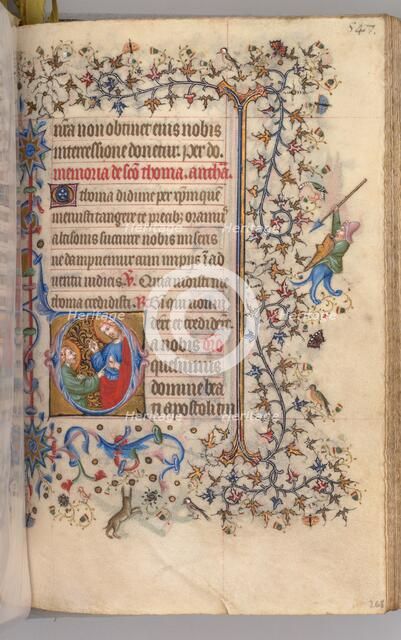 547.
nra non obtinet eius nobis
intercessione donetur. per do.
memoria de sco thoma. antha.
O thoma didime per xpm quem
meruisti tangere te precib; oramus
altisonis succurre nobis miseris
ne dampnemur cum impiis in ad
uentu iudicis. V. Quia uidisti me
thoma credidisti. R. Si qui non ui
derunt et crediderunt
a nobis dne
quesumus
domine bea
ti apostoli tui
268
Heritage
Heritage
Heritage
Heritage
Heritage
Heritage